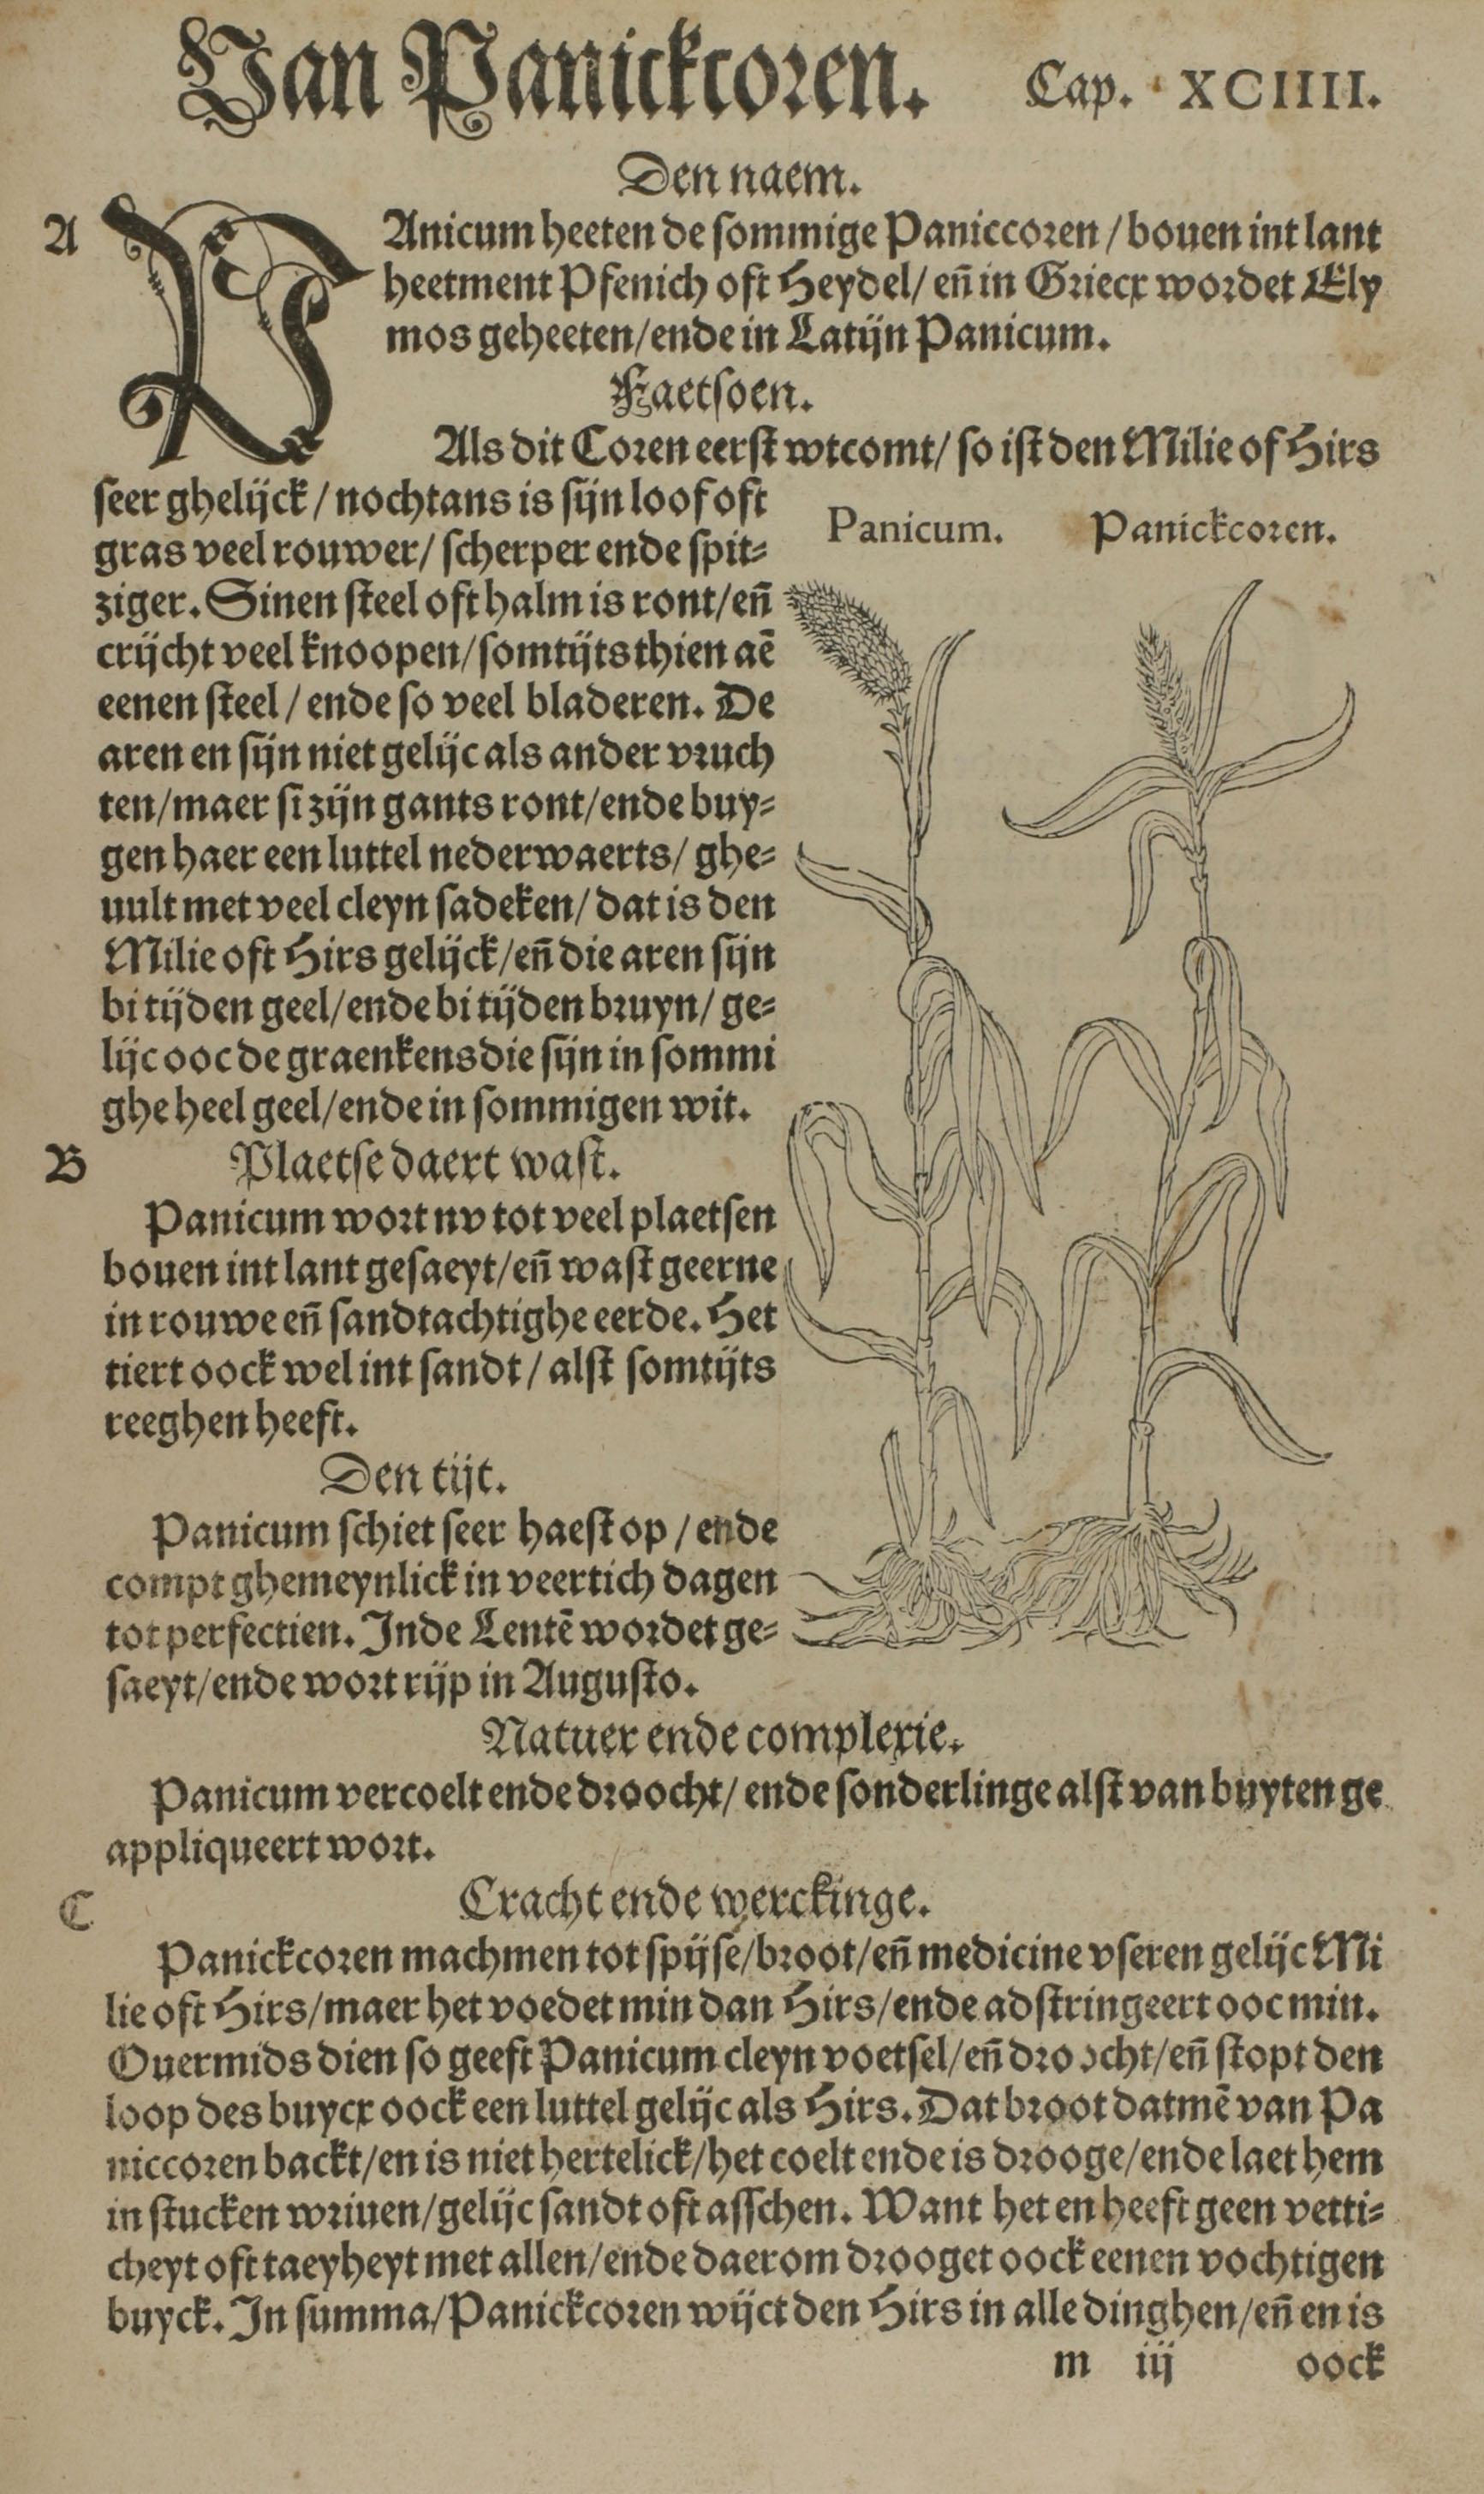 Van Panickcoren. Cap. XCIIII.
Den naem.
A
PAnicum heeten de sommige Paniccoren / bouen int lant
heetment Pfenich oft Heydel / eñ in Griecx wordet Ely
mos geheeten / ende in Latijn Panicum.
Faetsoen.
Als dit Coren eerst wtcomt / so ist den Milie of Hirs
seer ghelijck / nochtans is sijn loof oft
gras veel rouwer / scherper ende spit⸗
ziger. Sinen steel oft halm is ront / eñ
crijcht veel knoopen / somtijts thien aē
eenen steel / ende so veel bladeren. De
aren en sijn niet gelijc als ander vruch
ten / maer si zijn gants ront / ende buy⸗
gen haer een luttel nederwaerts / ghe⸗
uult met veel cleyn sadeken / dat is den
Milie oft Hirs gelijck / eñ die aren sijn
bi tijden geel / ende bi tijden bruyn / ge⸗
lijc ooc de graenkens die sijn in sommi
ghe heel geel / ende in sommigen wit.
Panicum. Panickcoren.
B
Plaetse daert wast.
Panicum wort nv tot veel plaetsen
bouen int lant gesaeyt / eñ wast geerne
in rouwe eñ sandtachtighe eerde. Het
tiert oock wel int sandt / alst somtijts
reeghen heeft.
Den tijt.
Panicum schiet seer haest op / ende
compt ghemeynlick in veertich dagen
tot perfectien. Inde Lentē wordet ge⸗
saeyt / ende wort rijp in Augusto.
Natuer ende complexie.
Panicum vercoelt ende droocht / ende sonderlinge alst van buyten ge
appliqueert wort.
C
Cracht ende werckinge.
Panickcoren machmen tot spijse / broot / eñ medicine vseren gelijc Mi
lie oft Hirs / maer het voedet min dan Hirs / ende adstringeert ooc min.
Ouermids dien so geeft Panicum cleyn voetsel / eñ droocht / eñ stopt den
loop des buycx oock een luttel gelijc als Hirs. Dat broot datmē van Pa
niccoren backt / en is niet hertelick / het coelt ende is drooge / ende laet hem
in stucken wriuen / gelijc sandt oft asschen. Want het en heeft geen vetti⸗
cheyt oft taeyheyt met allen / ende daerom drooget oock eenen vochtigen
buyck. In summa / Panickcoren wijct den Hirs in alle dinghen / eñ en is
m iij oock